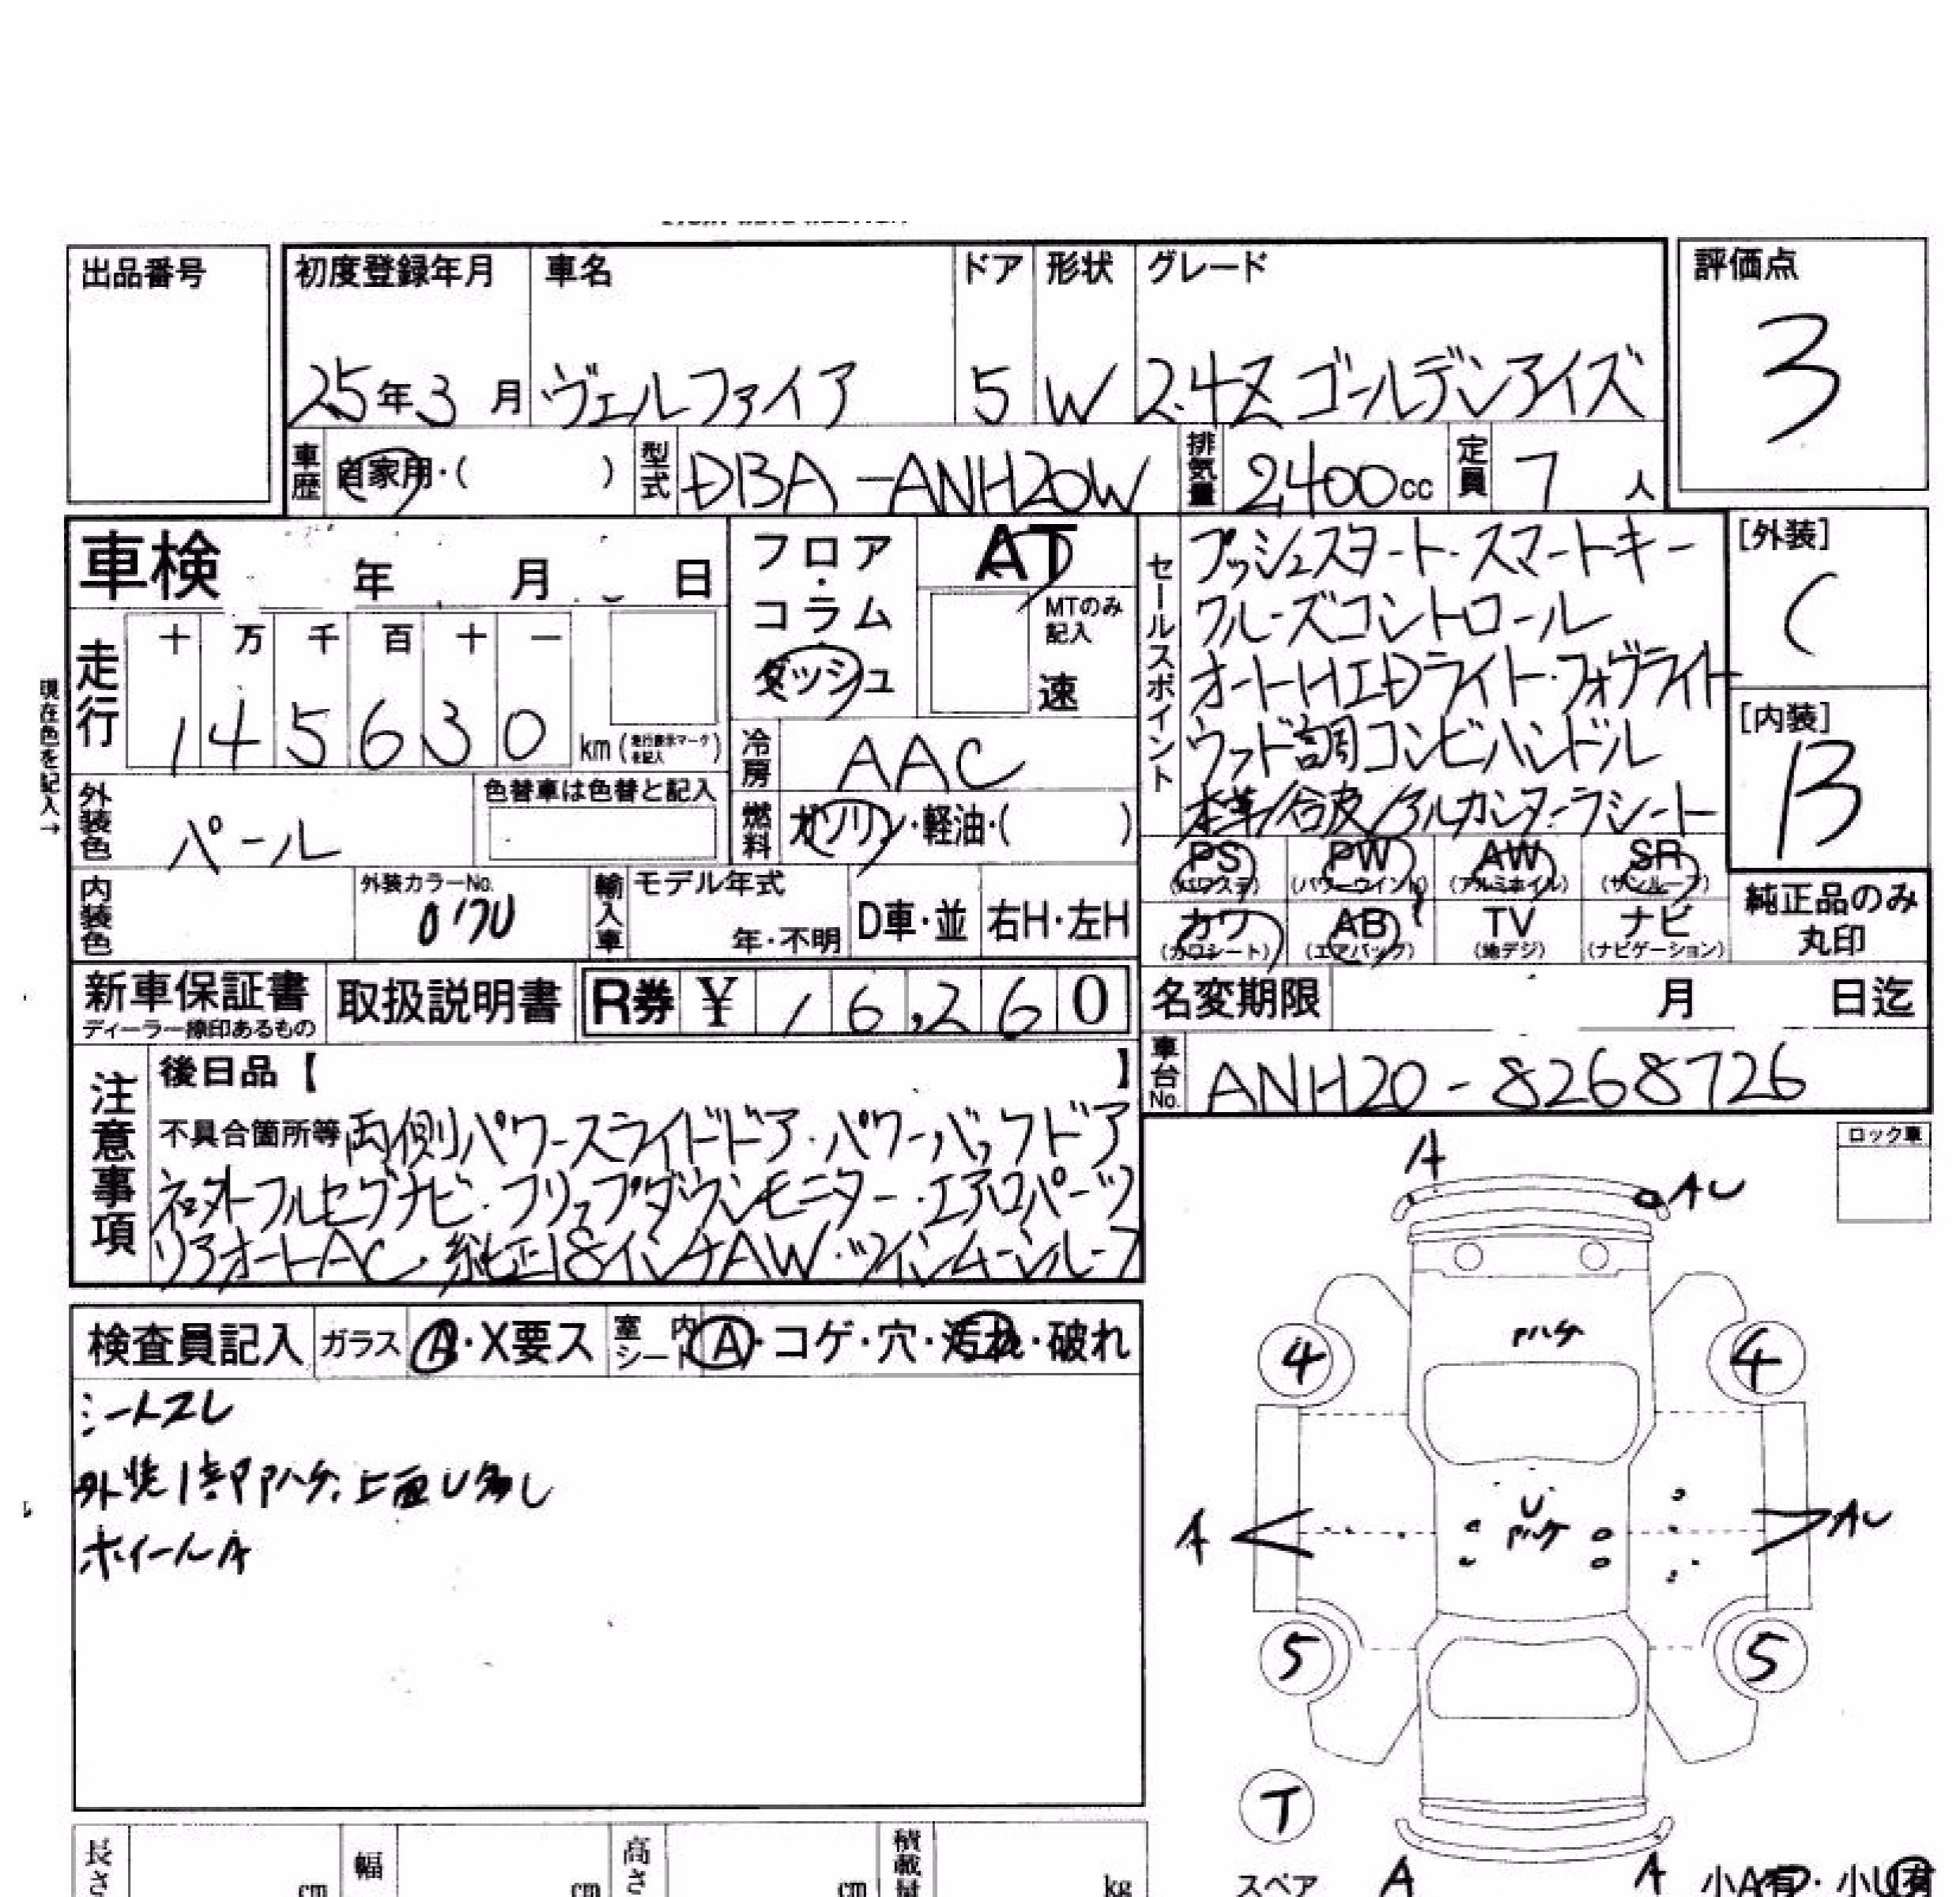 出品番号
初度登録年月 車名 ドア 形状 グレード 評価点
25年3月 ヴェルファイア 5 W 2.4Z ゴールデンアイズ 3
車歴 自家用・( ) 型式 DBA-ANH20W 排気量 2,400cc 定員 7人
車検 年 月 日
フロア・コラム・ダッシュ
AT
MTのみ記入
速
走行 十 万 千 百 十 一
145630 km (走行表示マークを記入)
現在色を記入→
冷房 AAC
外装色 パール 色替車は色替と記入
燃料 ガソリン・軽油・( )
内装色 外装カラーNo. 070
輸入車 モデル年式 年・不明 D車・並 右H・左H
セールスポイント
プッシュスタート・スマートキー
クルーズコントロール
オートHIDライト・フォグライト
ウッド調コンビハンドル
本革/合皮/アルカンターラシート
[外装] C
[内装] B
PS (パワステ) PW (パワーウインド) AW (アルミホイル) SR (サンルーフ)
カワ (カワシート) AB (エアバック) TV (地デジ) ナビ (ナビゲーション)
純正品のみ丸印
新車保証書 ディーラー捺印あるもの 取扱説明書 R券 ¥ 16,260
名変期限 月 日迄
車台No. ANH20-8268726
注意事項 後日品【 】
不具合箇所等 両側パワースライドドア・パワーバックドア
社外フルセグナビ・フリップダウンモニター・エアロパーツ
リアオートAC・純正18インチAW・ツインムーンルーフ
ロック車
検査員記入 ガラス A・X要ス 室内シート A・コゲ・穴・汚れ・破れ
シートスレ
外装1部Pハゲ、上面U多し
ホイールA
A
AU
Pハゲ
4 4
U
Pハゲ
A AU
5 5
T
スペア
A A
小A有・小U有
長さ cm 幅 cm 高さ cm 積載量 kg